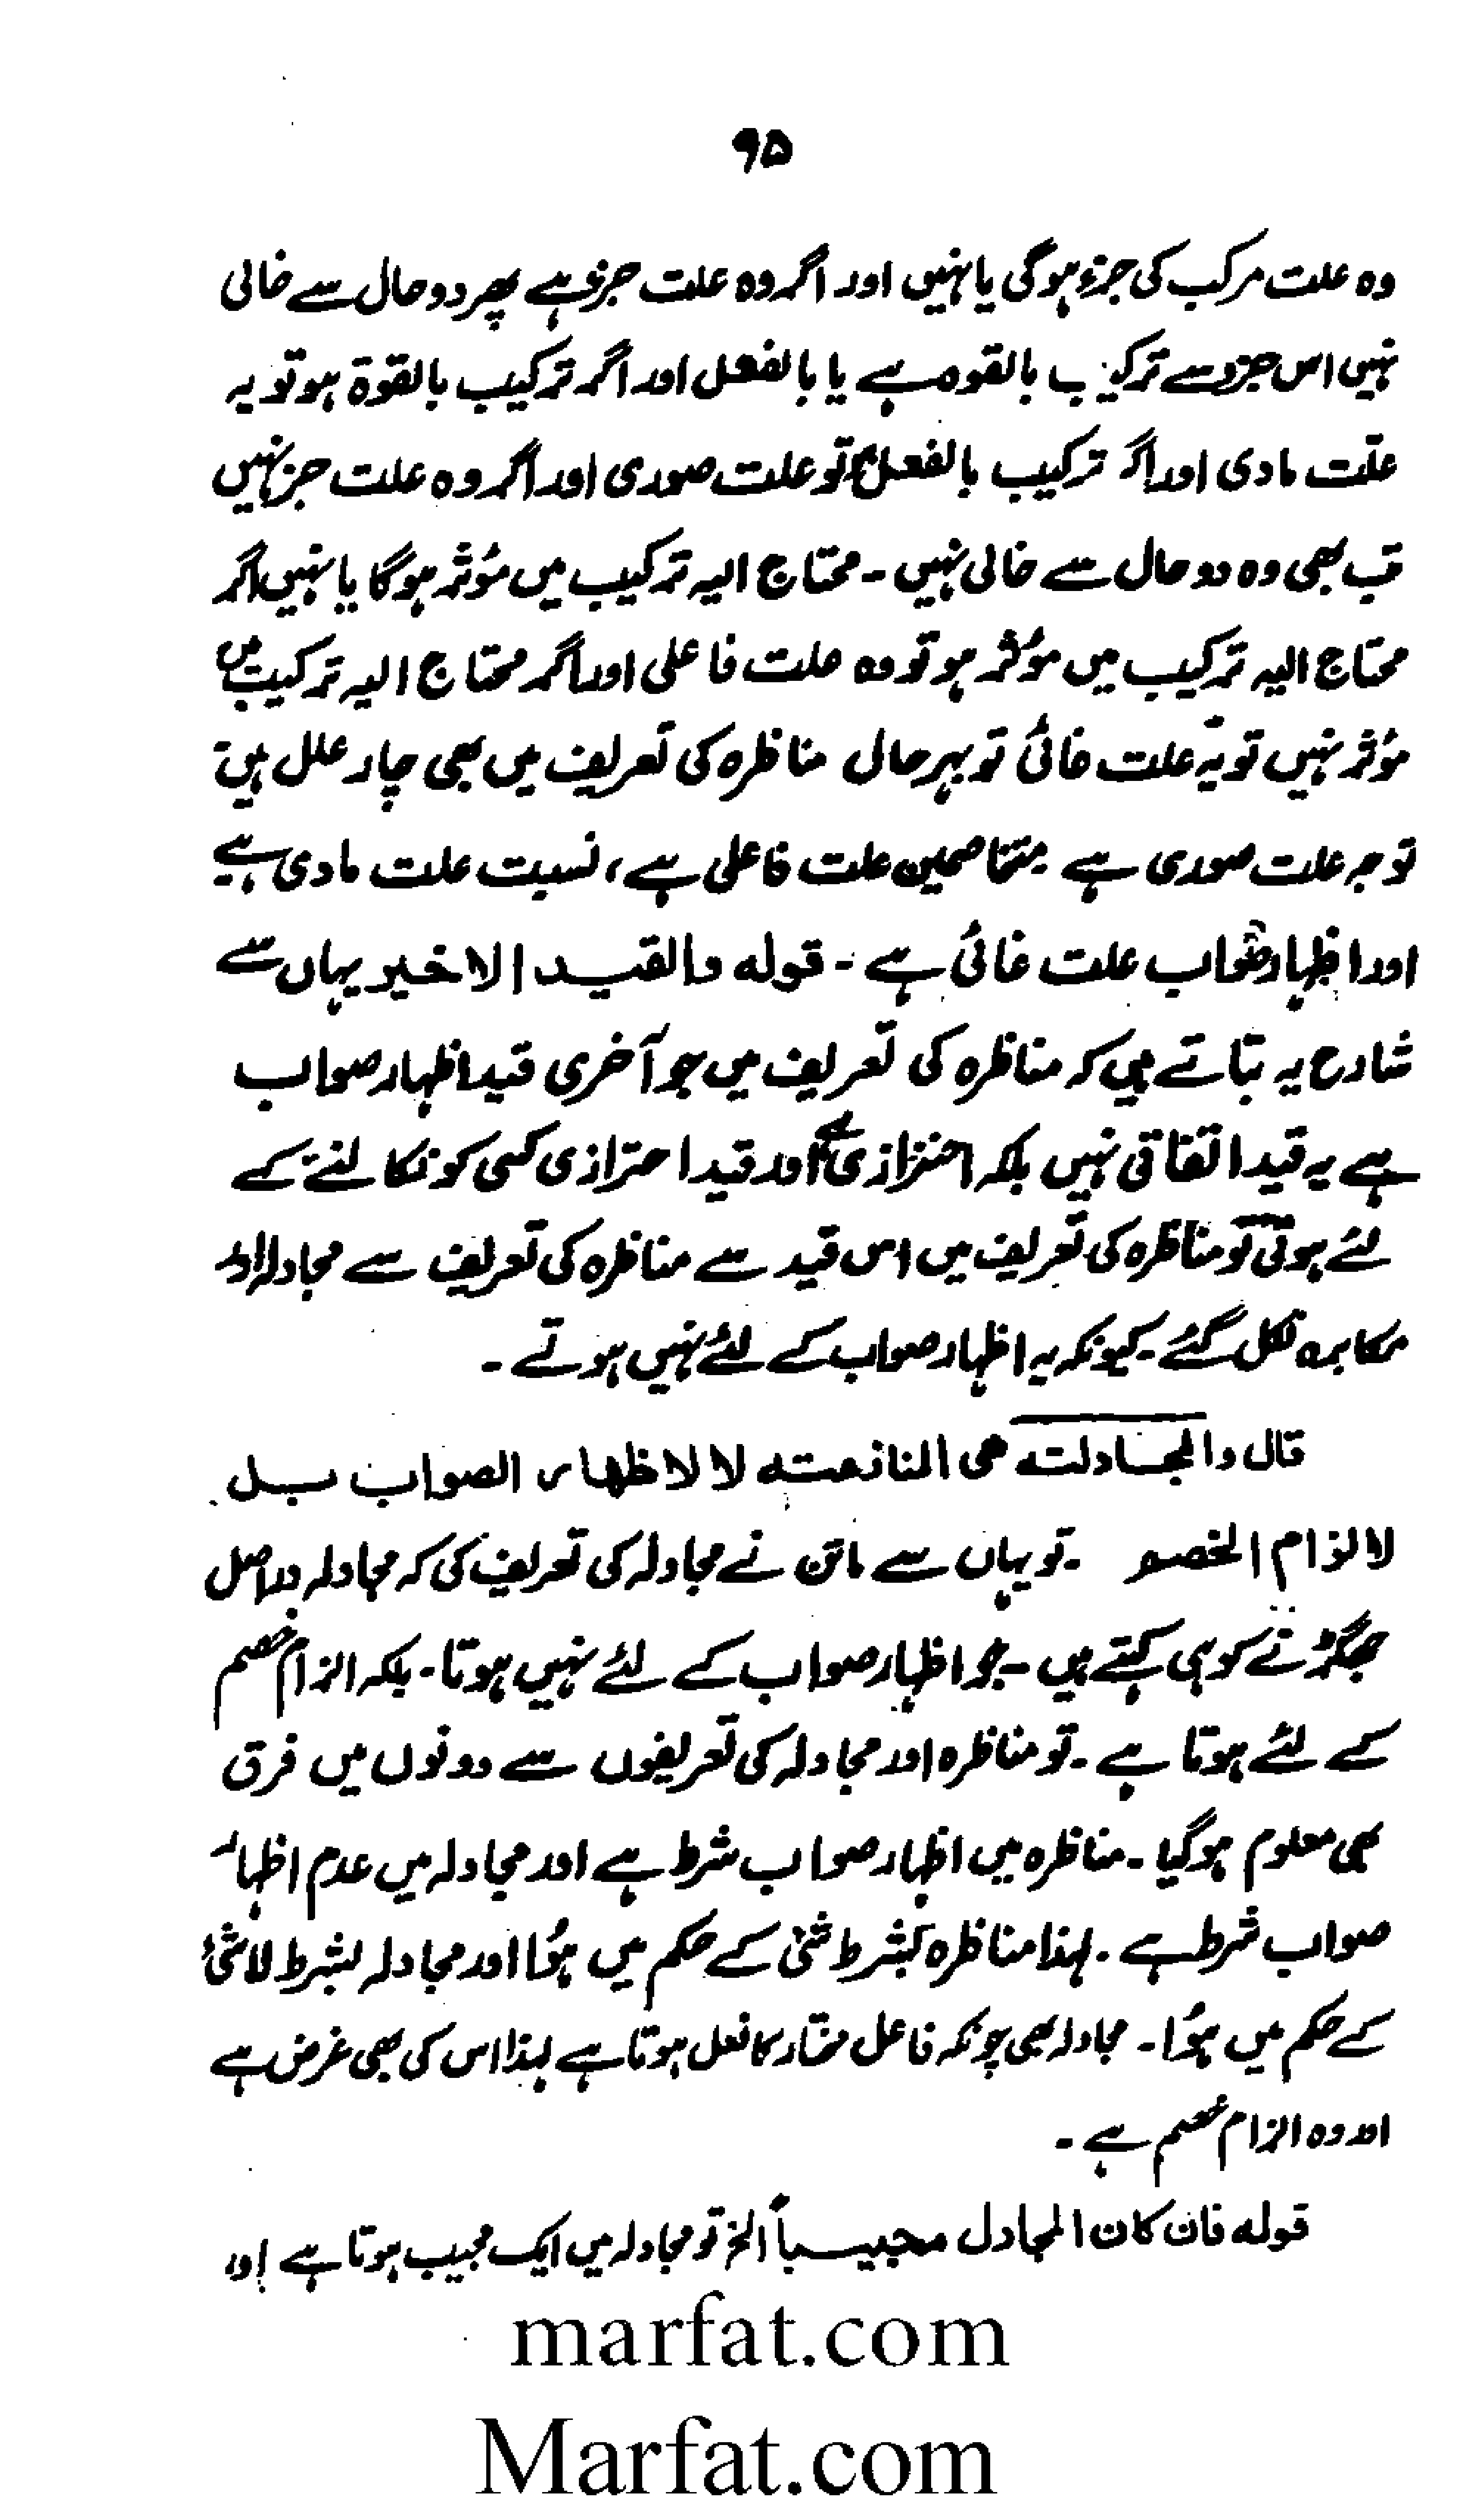 ۹۵
وہ علت مرکب کی جزء ہوگی یا نہیں اور اگر وہ علت جزو ہے پھر دو حال سے خالی
نہیں اس جزو سے ترکیب بالقوہ ہے یا بالفعل اور اگر ترکیب بالقوۃ ہو تو یہ
علّت مادی اور اگر ترکیب بالفعل ہے تو علت صوری اور اگر وہ علت جز نہیں
تب بھی وہ دو حال سے خالی نہیں ۔ محتاج الیہ ترکیب میں مؤثر ہوگا یا نہیں اگر
محتاج الیہ ترکیب میں مؤثر ہو تو وہ علت فاعلی اور اگر محتاج الیہ ترکیب میں
مؤثر نہیں تو یہ علت غائی تو بہر حال مناظرہ کی تعریف میں بھی چار علل ہیں
توجہ علت صوری ہے متخاصمین علت فاعلی ہے، نسبت علت مادی ہے
اور اظہار صواب علت غائی ہے ۔ قوله والقید الاخیر یہاں سے
شارح یہ بتاتے ہیں کہ مناظرہ کی تعریف میں جو آخری قید اظہار صواب
ہے یہ قید اتفاقی نہیں بلکہ احترازی ہے اور قید احترازی کسی کو نکالنے کے
لئے ہوتی تو مناظرہ کی تعریف میں اس قید سے مناظرہ کی تعریف سے مجادلہ اور
مکابرہ نکل گئے ۔ کیونکہ یہ اظہار صواب کے لئے نہیں ہوتے ۔
قال والمجادلته هی المنازعته لا لاظهار الصواب بل
لالزام الخصم ۔ تو یہاں سے ماتن نے مجادلہ کی تعریف کی کہ مجادلہ دراصل
جھگڑنے کو ہی کہتے ہیں ۔ جو اظہار صواب کے لئے نہیں ہوتا ۔ بلکہ الزام خصم
کے لئے ہوتا ہے ۔ تو مناظرہ اور مجادلہ کی تعریفوں سے دونوں میں فرق
بھی معلوم ہوگیا ۔ مناظرہ میں اظہار صواب شرط ہے اور مجادلہ میں عدم اظہار
صواب شرط ہے ۔ لہذا مناظرہ بشرط شئ کے حکم میں ہؤا اور مجادلہ بشرط لاشئ
کے حکم میں ہؤا ۔ مجادلہ بھی چونکہ فاعل مختار کا فعل ہوتا ہے لہذا اس کی بھی غرض ہے
اور وہ الزام خصم ہے ۔
قوله فان كان المجادل مجیباً الخ تو مجادلہ میں ایک مجیب ہوتا ہے اور
marfat.com
Marfat.com